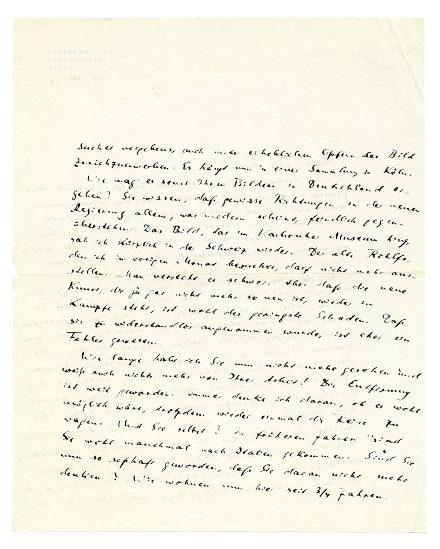 suchte vergebens, auch unter erheblichen Opfern das Bild
zurückzuerwerben. Es hängt nun in einer Sammlung in Köln.
Wie mag es sonst Ihren Bildern in Deutschland er-
gehen? Sie wissen, daß gewisse Richtungen in der neuen
Regierung allem, was modern scheint, feindlich gegen-
überstehen. Das Bild, das im Karlsruher Museum hing,
sah ich kürzlich in der Schweiz wieder. Der alte Rohlfs,
den ich im vorigen Monat besuchte, darf nicht mehr aus-
stellen. Man versteht es schwer. Aber daß die neue
Kunst, die ja gar nicht mehr so neu ist, wieder im
Kampfe steht, ist wohl der geringste Schaden. Daß
sie zu widerstandlos angenommen wurde, ist eher ein
Fehler gewesen.
Wie lange habe ich Sie nun nicht mehr gesehen und
weiß auch nichts mehr von Ihrer Arbeit! Die Entfernung
ist weit geworden. Immer denke ich daran, ob es wohl
möglich wäre, trotzdem wieder einmal die Reise zu
wagen. Und Sie selbst? In früheren Jahren sind
Sie wohl manchmal nach Italien gekommen. Sind Sie
nun so seßhaft geworden, daß Sie daran nicht mehr
denken? Wir wohnen nun hier seit 3/4 Jahren.